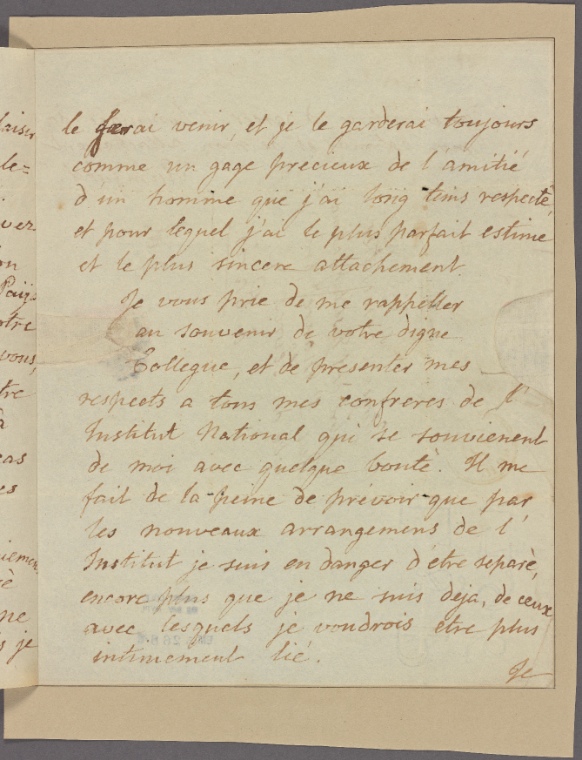 le ferai venir, et je le garderai toujours
comme un gage precieux de l'amitié
d'un homme que j'ai long tems respecté,
et pour lequel j'ai le plus parfait estime
et le plus sincere attachement.
Je vous prie de me rappeller
au souvenir de votre digne
Collegue, et de presenter mes
respects a tous mes confreres de l'
Institut National qui se souvienent
de moi avec quelque bonté. Il me
fait de la peine de prévoir que par
les nouveaux arrangemens de l'
Institut je suis en danger d'étre separé,
encore plus que je ne suis deja, de ceux
avec lesquels je voudrois etre plus
intimement lié.
Je